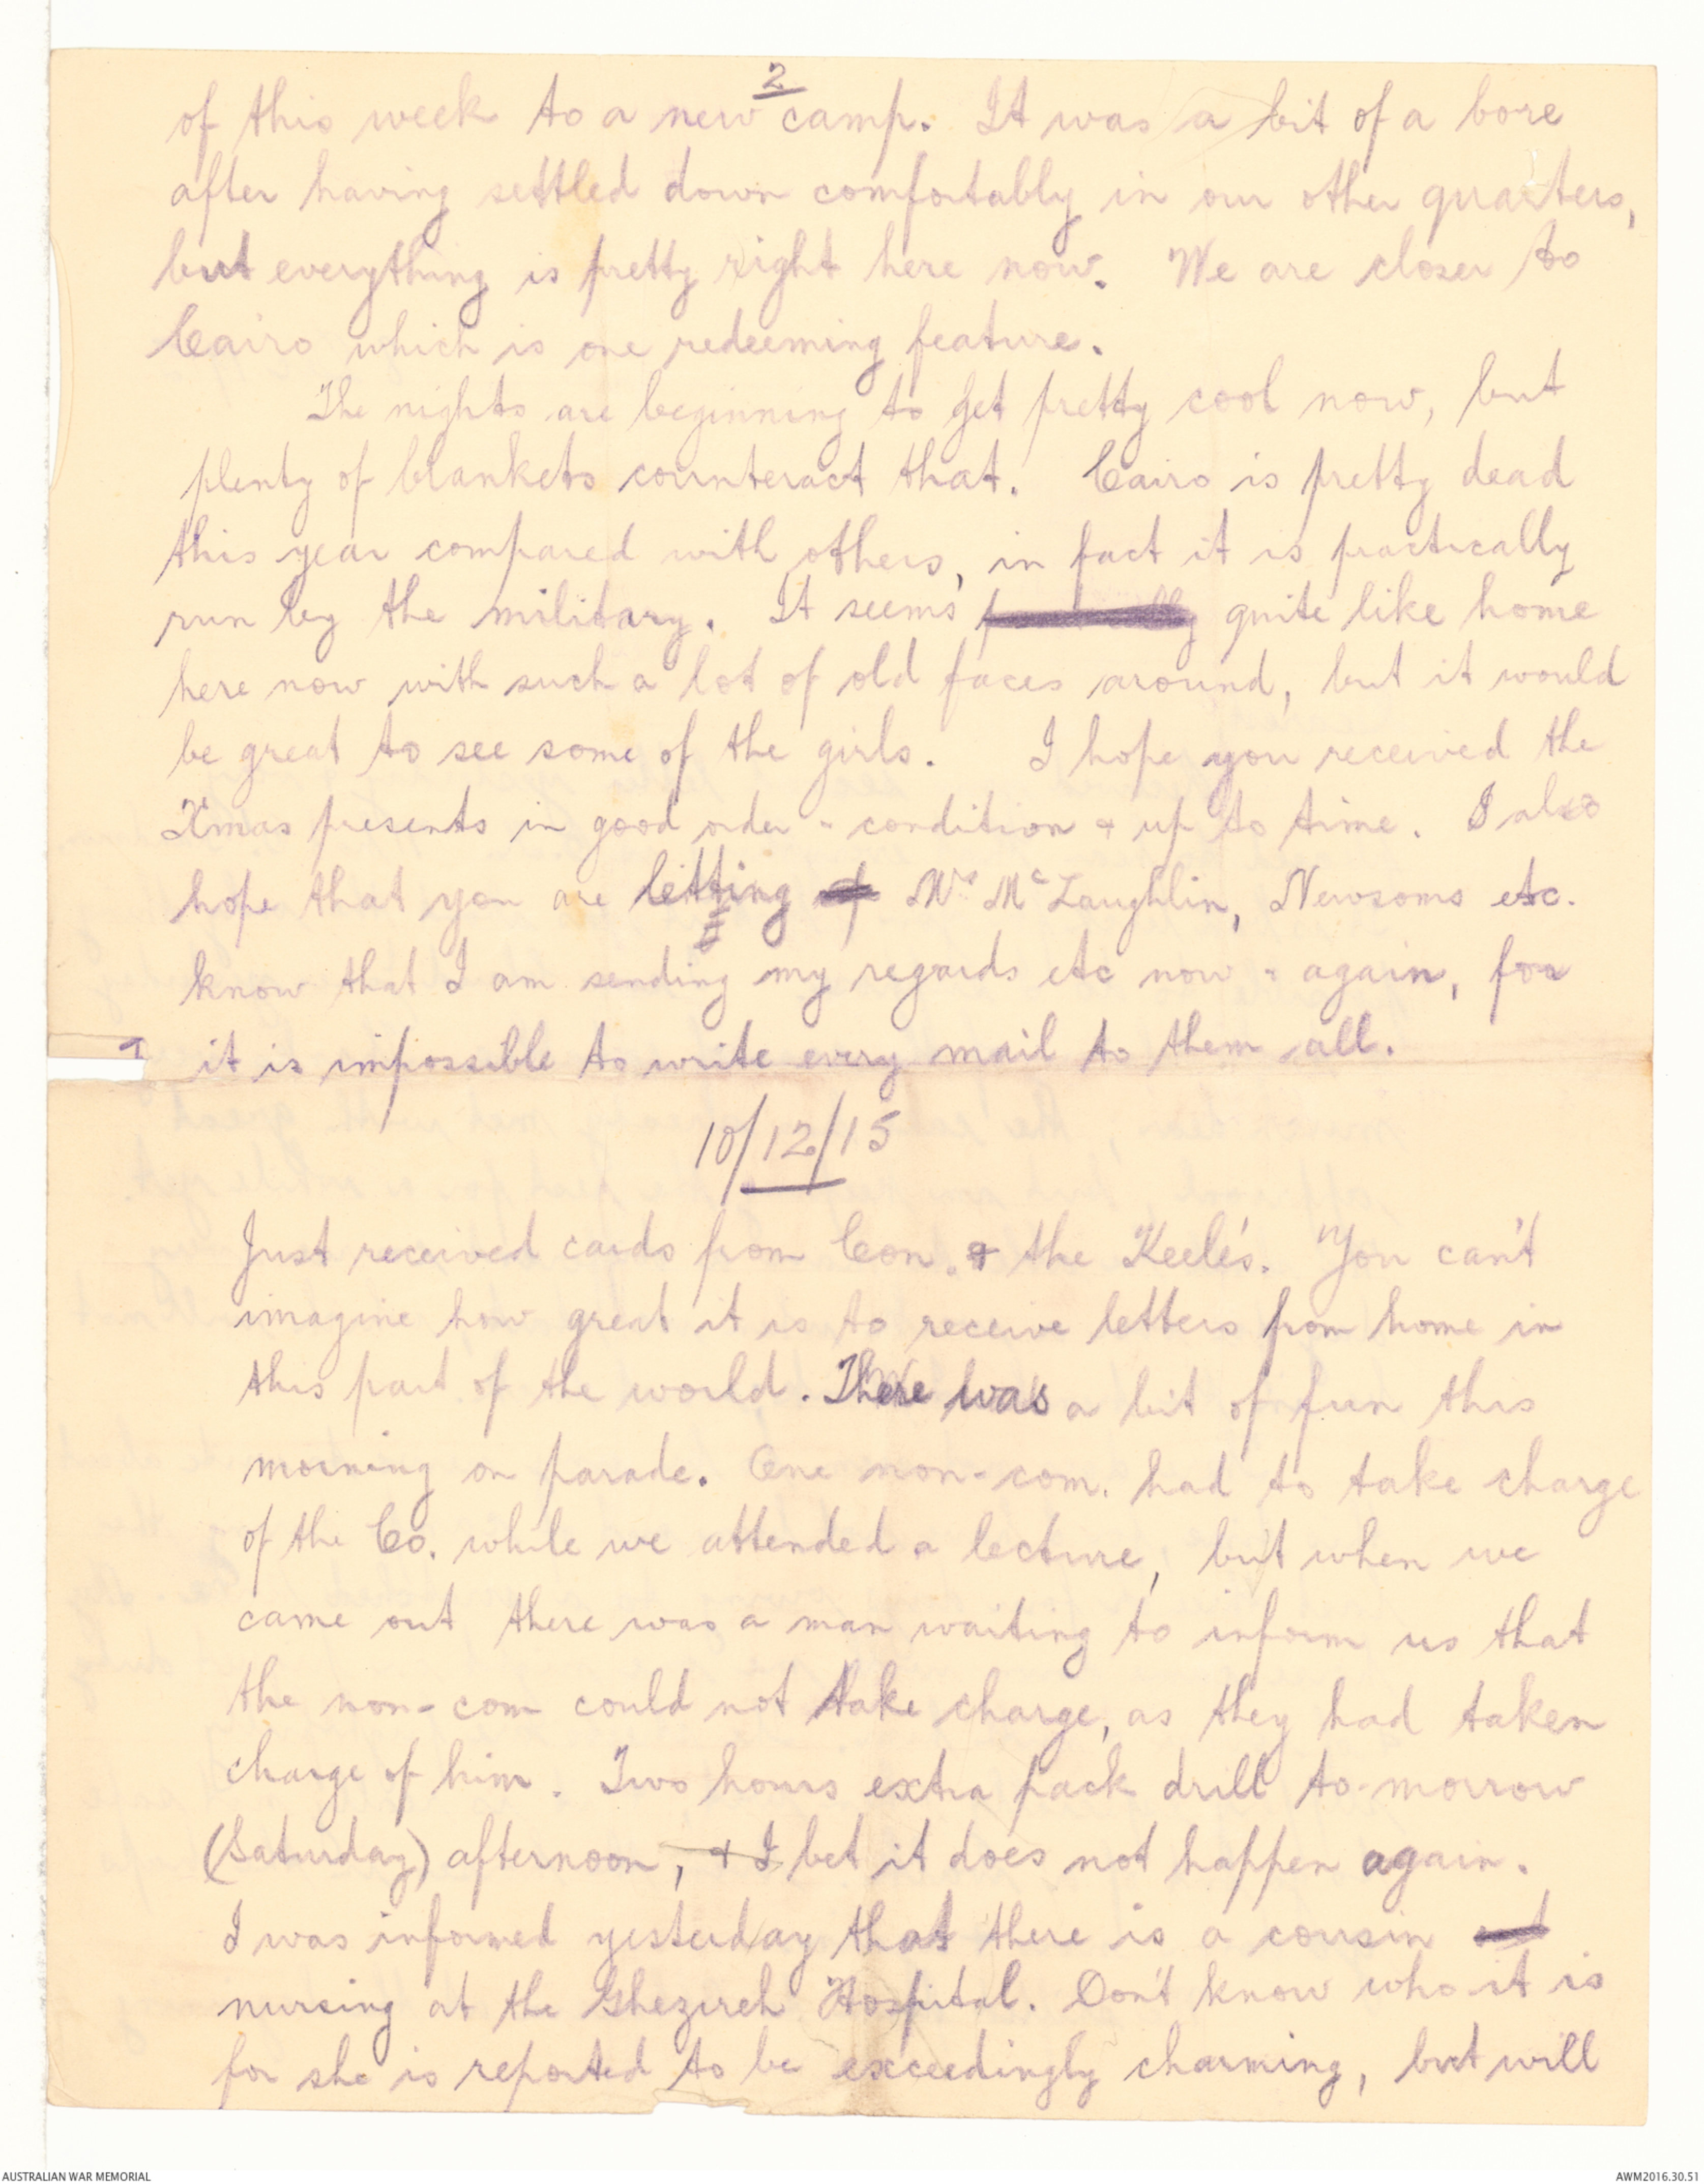 2
of this week to a new camp. It was a bit of a bore
after having settled down comfortably in our other quarters,
but everything is pretty right here now. We are closer to
Cairo which is one redeeming feature.
The nights are beginning to get pretty cool now, but
plenty of blankets counteract that. Cairo is pretty dead
this year compared with others, in fact it is practically
run by the military. It seems quite like home
here now with such a lot of old faces around, but it would
be great to see some of the girls. I hope you received the
Xmas presents in good order & condition & up to time. I also
hope that you are letting Mrs McLaughlin, Newsoms etc.
know that I am sending my regards etc now & again, for
it is impossible to write every mail to them all.
10/12/15
Just received cards from Con. & the Keele's. You can't
imagine how great it is to receive letters from home in
this part of the world. There was a bit of fun this
morning on parade. One non-com. had to take charge
of the Co. while we attended a lecture, but when we
came out there was a man waiting to inform us that
the non-com could not take charge, as they had taken
charge of him. Two hours extra pack drill to-morrow
(Saturday) afternoon, & I bet it does not happen again.
I was informed yesterday that there is a cousin
nursing at the Ghezireh Hospital. Don't know who it is
for she is reported to be exceedingly charming, but will
AUSTRALIAN WAR MEMORIAL
AWM2016.30.51